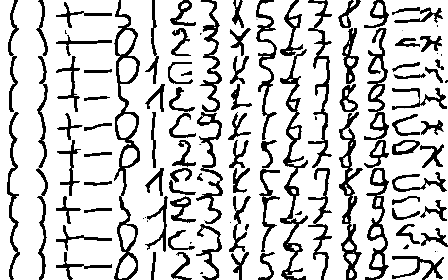 ( ) + - 0 1 2 3 4 5 6 7 8 9 x
( ) + - 0 1 2 3 4 5 6 7 8 9 x
( ) + - 0 1 2 3 4 5 6 7 8 9 x
( ) + - 0 1 2 3 4 5 6 7 8 9 x
( ) + - 0 1 2 3 4 5 6 7 8 9 x
( ) + - 0 1 2 3 4 5 6 7 8 9 x
( ) + - 0 1 2 3 4 5 6 7 8 9 x
( ) + - 0 1 2 3 4 5 6 7 8 9 x
( ) + - 0 1 2 3 4 5 6 7 8 9 x
( ) + - 0 1 2 3 4 5 6 7 8 9 x